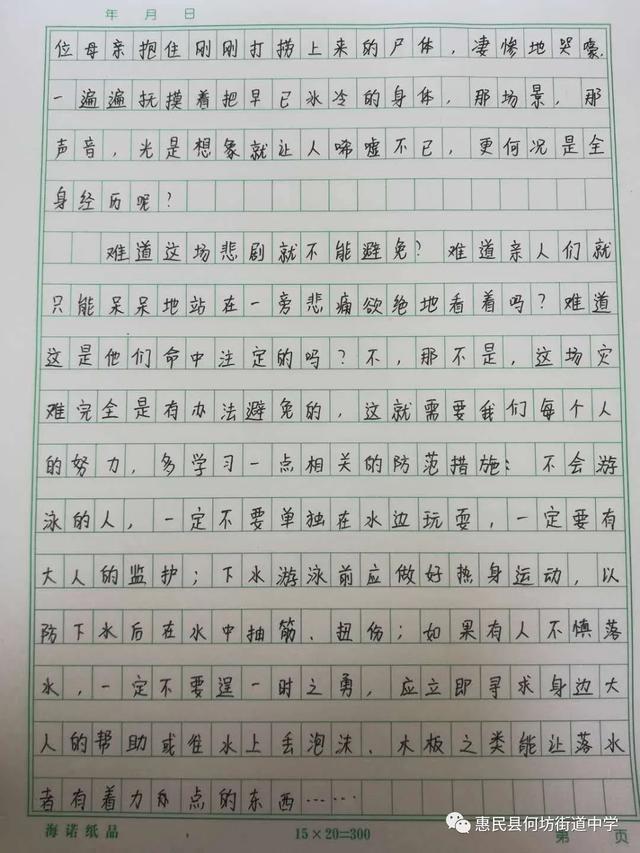 年 月 日
位母亲抱住刚刚打捞上来的尸体，凄惨地哭嚎，
一遍遍抚摸着把早已冰冷的身体，那场景，那
声音，光是想象就让人唏嘘不已，更何况是全
身经历呢？
难道这场悲剧就不能避免？难道亲人们就
只能呆呆地站在一旁悲痛欲绝地看着吗？难道
这是他们命中注定的吗？不，那不是，这场灾
难完全是有办法避免的，这就需要我们每个人
的努力，多学习一点相关的防范措施：不会游
泳的人，一定不要单独在水边玩耍，一定要有
大人的监护；下水游泳前应做好热身运动，以
防下水后在水中抽筋、扭伤；如果有人不慎落
水，一定不要逞一时之勇，应立即寻求身边大
人的帮助或往水上丢泡沫、木板之类能让落水
者有着力点的东西……
海诺纸品
15×20=300
第 页
惠民县何坊街道中学